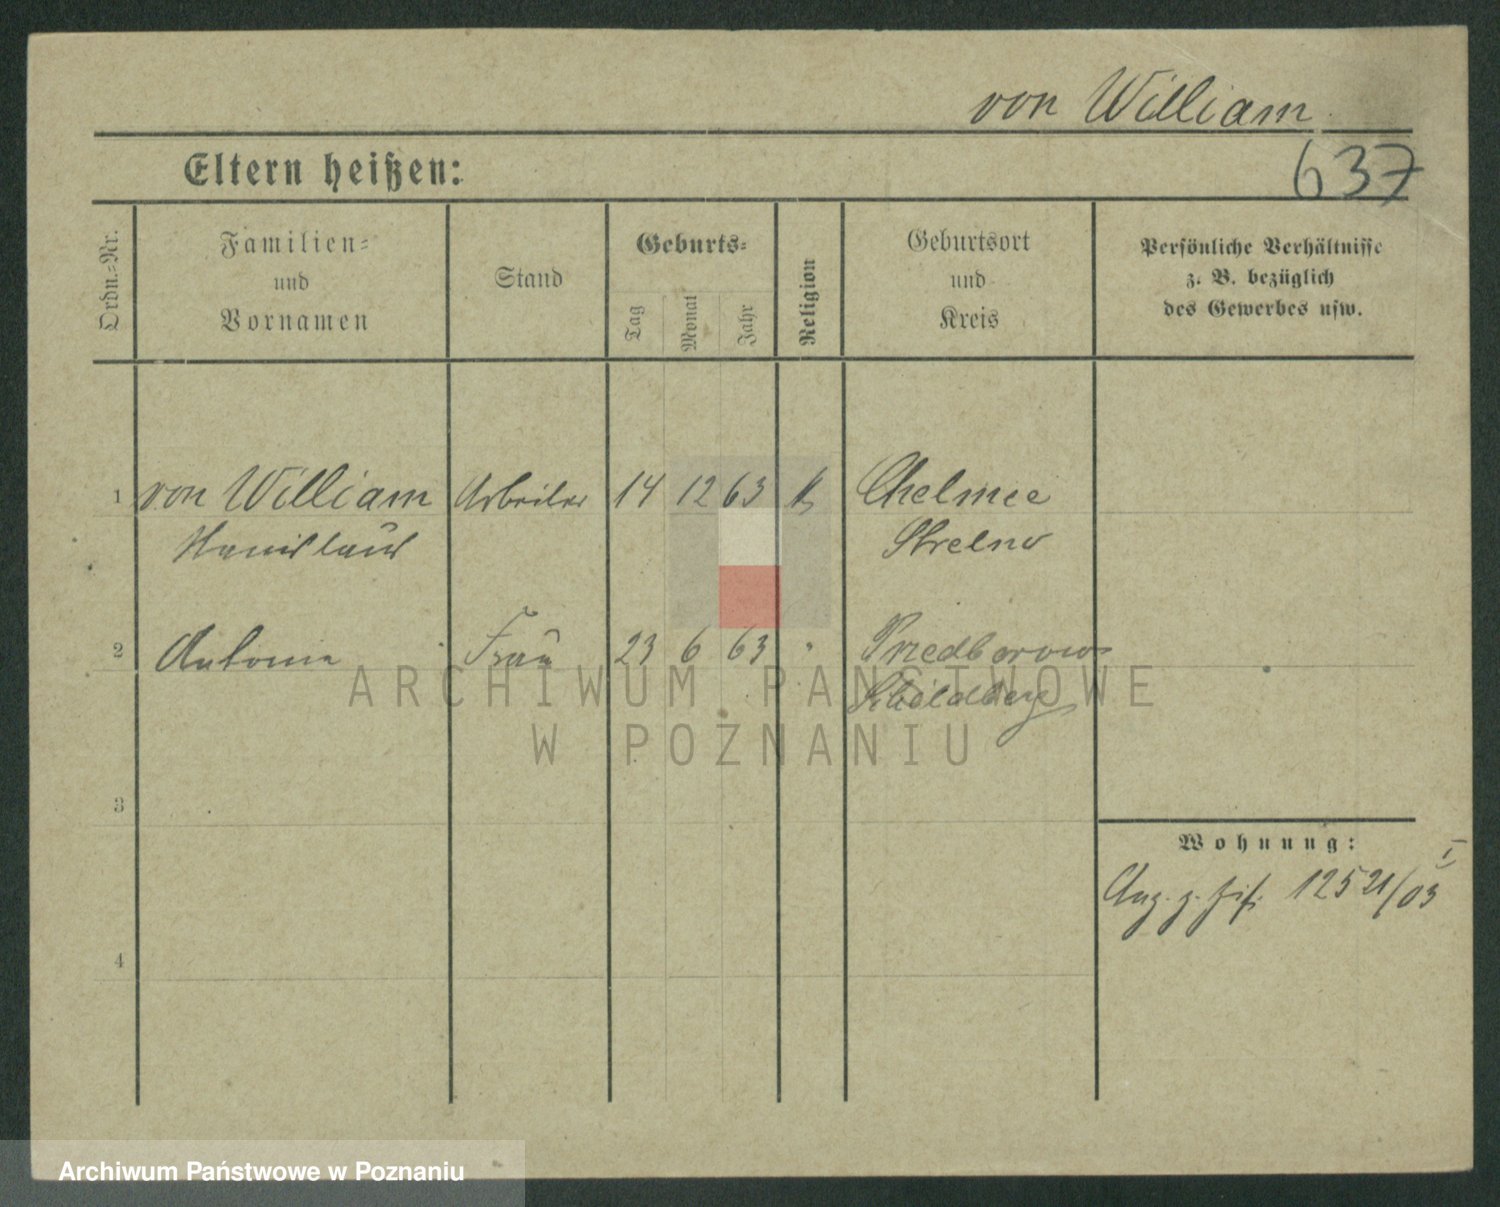 von William
637
Eltern heißen:
Ordn.-Nr.
Familien-
und
Vornamen
Stand
Geburts-
Tag
Monat
Jahr
Religion
Geburtsort
und
Kreis
Persönliche Verhältnisse
z. B. bezüglich
des Gewerbes usw.
1 von William Arbeiter 14 12 63 k Chelmce
Stanislaus Strelno
2 Antonie Frau 23 6 63 " Przedborow
Schildberg
ARCHIWUM PAŃSTWOWE
W POZNANIU
3
Wohnung:
12521/03
4
Archiwum Państwowe w Poznaniu